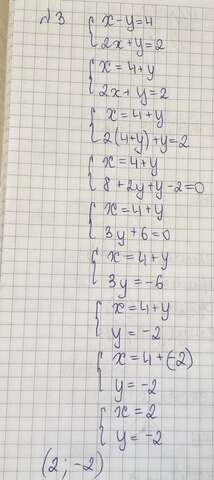 √3 { x-y=4
2x+y=2
{ x=4+y
2x+y=2
{ x=4+y
2(4+y)+y=2
{ x=4+y
8+2y+y-2=0
{ x=4+y
3y+6=0
{ x=4+y
3y=-6
{ x=4+y
y=-2
{ x=4+(-2)
y=-2
{ x=2
y=-2
(2;-2)